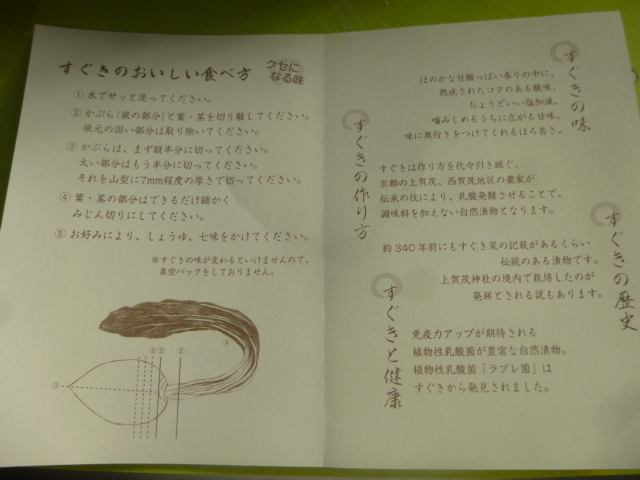 すぐきのおいしい食べ方
クセに
なる味
① 水でサッと洗ってください。
② かぶら(根の部分)と葉・茎を切り離してください。
根元の固い部分は取り除いてください。
③ かぶらは、まず縦半分に切ってください。
太い部分はもう半分に切ってください。
それを山型に7mm程度の厚さで切ってください。
④ 葉・茎の部分はできるだけ細かく
みじん切りにしてください。
⑤ お好みにより、しょうゆ、七味をかけてください。
※すぐきの味が変わるといけませんので、
真空パックをしておりません。
②
②
③
④
すぐきの味
ほのかな甘酸っぱい香りの中に、
熟成されたコクのある酸味。
ちょうどいい塩加減、
噛みしめるうちに広がる甘味。
味に奥行きをつけてくれるほろ苦さ。
すぐきの作り方
すぐきは作り方を代々引き継ぐ。
京都の上賀茂、西賀茂地区の農家が
伝承の技により、乳酸発酵させることで、
調味料を加えない自然漬物となります。
すぐきの歴史
約340年前にもすぐき菜の記載があるくらい
伝統のある漬物です。
上賀茂神社の境内で栽培したのが
発祥とされる説もあります。
すぐきと健康
免疫力アップが期待される
植物性乳酸菌が豊富な自然漬物。
植物性乳酸菌「ラブレ菌」は
すぐきから発見されました。